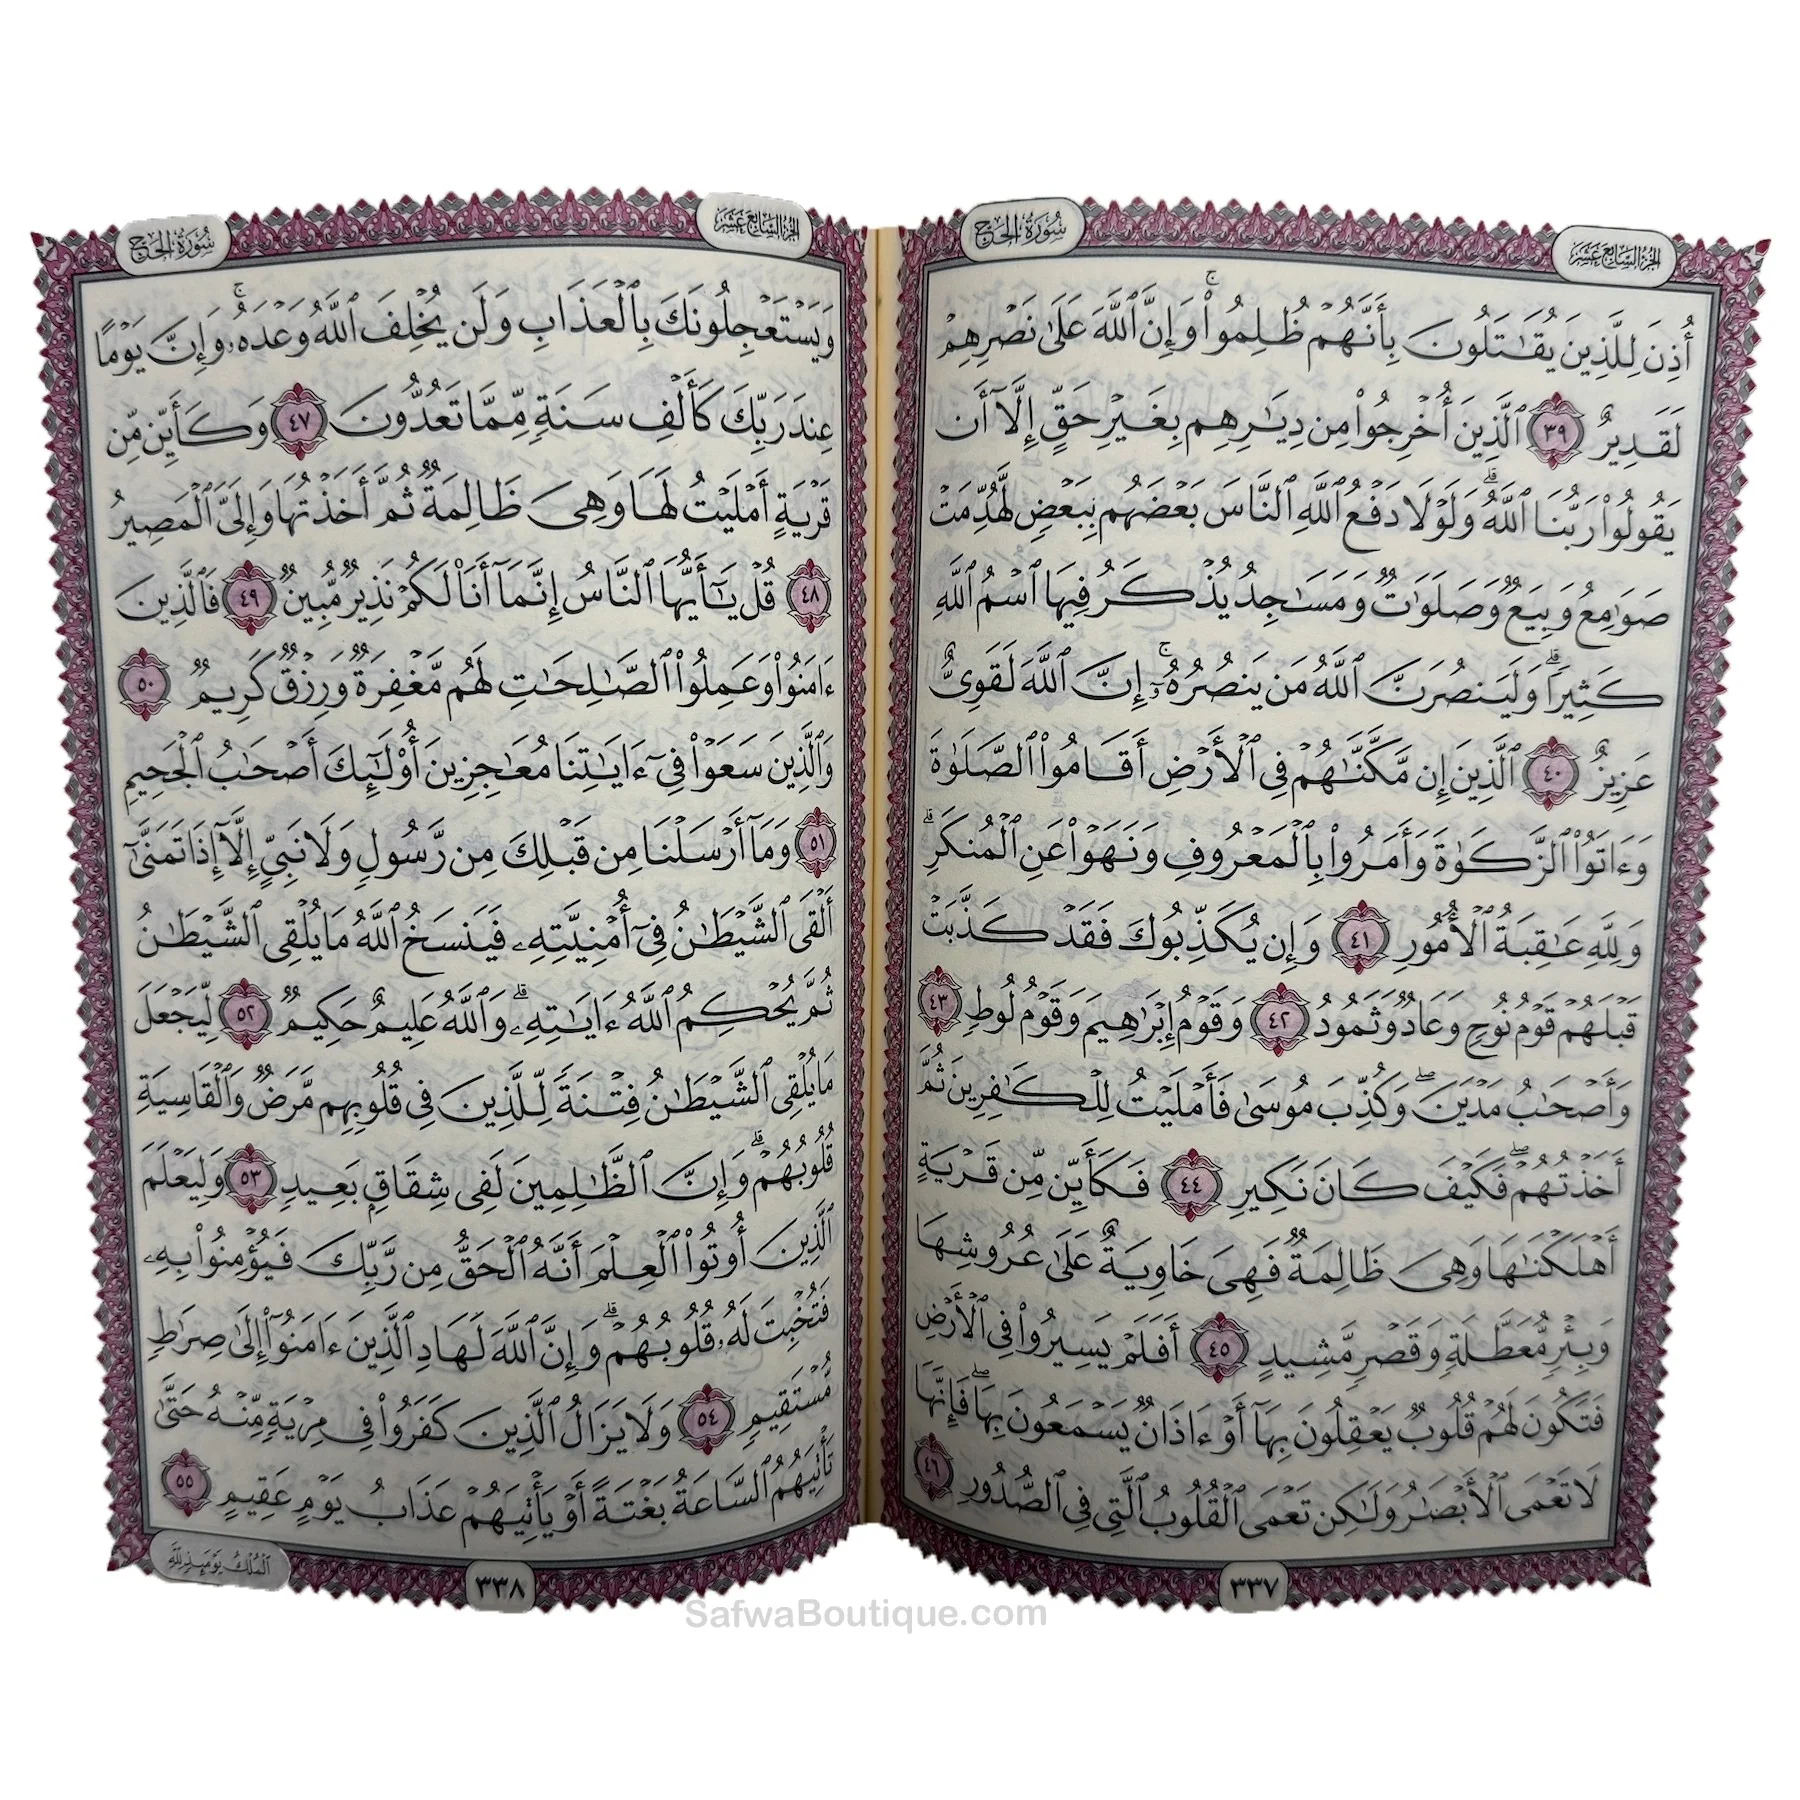 الجزء السابع عشر
سورة الحج
أُذِنَ لِلَّذِينَ يُقَٰتَلُونَ بِأَنَّهُمۡ ظُلِمُواْۚ وَإِنَّ ٱللَّهَ عَلَىٰ نَصۡرِهِمۡ
لَقَدِيرٌ ٣٩ ٱلَّذِينَ أُخۡرِجُواْ مِن دِيَٰرِهِم بِغَيۡرِ حَقٍّ إِلَّآ أَن
يَقُولُواْ رَبُّنَا ٱللَّهُۗ وَلَوۡلَا دَفۡعُ ٱللَّهِ ٱلنَّاسَ بَعۡضَهُم بِبَعۡضٖ لَّهُدِّمَتۡ
صَوَٰمِعُ وَبِيَعٞ وَصَلَوَٰتٞ وَمَسَٰجِدُ يُذۡكَرُ فِيهَا ٱسۡمُ ٱللَّهِ
كَثِيرٗاۗ وَلَيَنصُرَنَّ ٱللَّهُ مَن يَنصُرُهُۥٓۚ إِنَّ ٱللَّهَ لَقَوِيٌّ
عَزِيزٌ ٤٠ ٱلَّذِينَ إِن مَّكَّنَّٰهُمۡ فِي ٱلۡأَرۡضِ أَقَامُواْ ٱلصَّلَوٰةَ
وَءَاتَوُاْ ٱلزَّكَوٰةَ وَأَمَرُواْ بِٱلۡمَعۡرُوفِ وَنَهَوۡاْ عَنِ ٱلۡمُنكَرِۗ
وَلِلَّهِ عَٰقِبَةُ ٱلۡأُمُورِ ٤١ وَإِن يُكَذِّبُوكَ فَقَدۡ كَذَّبَتۡ
قَبۡلَهُمۡ قَوۡمُ نُوحٖ وَعَادٞ وَثَمُودُ ٤٢ وَقَوۡمُ إِبۡرَٰهِيمَ وَقَوۡمُ لُوطٖ ٤٣
وَأَصۡحَٰبُ مَدۡيَنَۖ وَكُذِّبَ مُوسَىٰ فَأَمۡلَيۡتُ لِلۡكَٰفِرِينَ ثُمَّ
أَخَذۡتُهُمۡۖ فَكَيۡفَ كَانَ نَكِيرِ ٤٤ فَكَأَيِّن مِّن قَرۡيَةٍ
أَهۡلَكۡنَٰهَا وَهِيَ ظَالِمَةٞ فَهِيَ خَاوِيَةٌ عَلَىٰ عُرُوشِهَا
وَبِئۡرٖ مُّعَطَّلَةٖ وَقَصۡرٖ مَّشِيدٍ ٤٥ أَفَلَمۡ يَسِيرُواْ فِي ٱلۡأَرۡضِ
فَتَكُونَ لَهُمۡ قُلُوبٞ يَعۡقِلُونَ بِهَآ أَوۡ ءَاذَانٞ يَسۡمَعُونَ بِهَاۖ فَإِنَّهَا
لَا تَعۡمَى ٱلۡأَبۡصَٰرُ وَلَٰكِن تَعۡمَى ٱلۡقُلُوبُ ٱلَّتِي فِي ٱلصُّدُورِ ٤٦
٣٣٧
الجزء السابع عشر
سورة الحج
وَيَسۡتَعۡجِلُونَكَ بِٱلۡعَذَابِ وَلَن يُخۡلِفَ ٱللَّهُ وَعۡدَهُۥۚ وَإِنَّ يَوۡمًا
عِندَ رَبِّكَ كَأَلۡفِ سَنَةٖ مِّمَّا تَعُدُّونَ ٤٧ وَكَأَيِّن مِّن
قَرۡيَةٍ أَمۡلَيۡتُ لَهَا وَهِيَ ظَالِمَةٞ ثُمَّ أَخَذۡتُهَا وَإِلَيَّ ٱلۡمَصِيرُ
٤٨ قُلۡ يَٰٓأَيُّهَا ٱلنَّاسُ إِنَّمَآ أَنَا۠ لَكُمۡ نَذِيرٞ مُّبِينٞ ٤٩ فَٱلَّذِينَ
ءَامَنُواْ وَعَمِلُواْ ٱلصَّٰلِحَٰتِ لَهُم مَّغۡفِرَةٞ وَرِزۡقٞ كَرِيمٞ ٥٠
وَٱلَّذِينَ سَعَوۡاْ فِيٓ ءَايَٰتِنَا مُعَٰجِزِينَ أُوْلَٰٓئِكَ أَصۡحَٰبُ ٱلۡجَحِيمِ
٥١ وَمَآ أَرۡسَلۡنَا مِن قَبۡلِكَ مِن رَّسُولٖ وَلَا نَبِيٍّ إِلَّآ إِذَا تَمَنَّىٰٓ
أَلۡقَى ٱلشَّيۡطَٰنُ فِيٓ أُمۡنِيَّتِهِۦ فَيَنسَخُ ٱللَّهُ مَا يُلۡقِي ٱلشَّيۡطَٰنُ
ثُمَّ يُحۡكِمُ ٱللَّهُ ءَايَٰتِهِۦۗ وَٱللَّهُ عَلِيمٌ حَكِيمٞ ٥٢ لِّيَجۡعَلَ
مَا يُلۡقِي ٱلشَّيۡطَٰنُ فِتۡنَةٗ لِّلَّذِينَ فِي قُلُوبِهِم مَّرَضٞ وَٱلۡقَاسِيَةِ
قُلُوبُهُمۡۗ وَإِنَّ ٱلظَّٰلِمِينَ لَفِي شِقَاقِۭ بَعِيدٖ ٥٣ وَلِيَعۡلَمَ
ٱلَّذِينَ أُوتُواْ ٱلۡعِلۡمَ أَنَّهُ ٱلۡحَقُّ مِن رَّبِّكَ فَيُؤۡمِنُواْ بِهِۦ
فَتُخۡبِتَ لَهُۥ قُلُوبُهُمۡۗ وَإِنَّ ٱللَّهَ لَهَادِ ٱلَّذِينَ ءَامَنُوٓاْ إِلَىٰ صِرَٰطٖ
مُّسۡتَقِيمٖ ٥٤ وَلَا يَزَالُ ٱلَّذِينَ كَفَرُواْ فِي مِرۡيَةٖ مِّنۡهُ حَتَّىٰ
تَأۡتِيَهُمُ ٱلسَّاعَةُ بَغۡتَةً أَوۡ يَأۡتِيَهُمۡ عَذَابُ يَوۡمٍ عَقِيمٍ ٥٥
ٱلۡمُلۡكُ يَوۡمَئِذٖ لِّلَّهِ
٣٣٨
SafwaBoutique.com